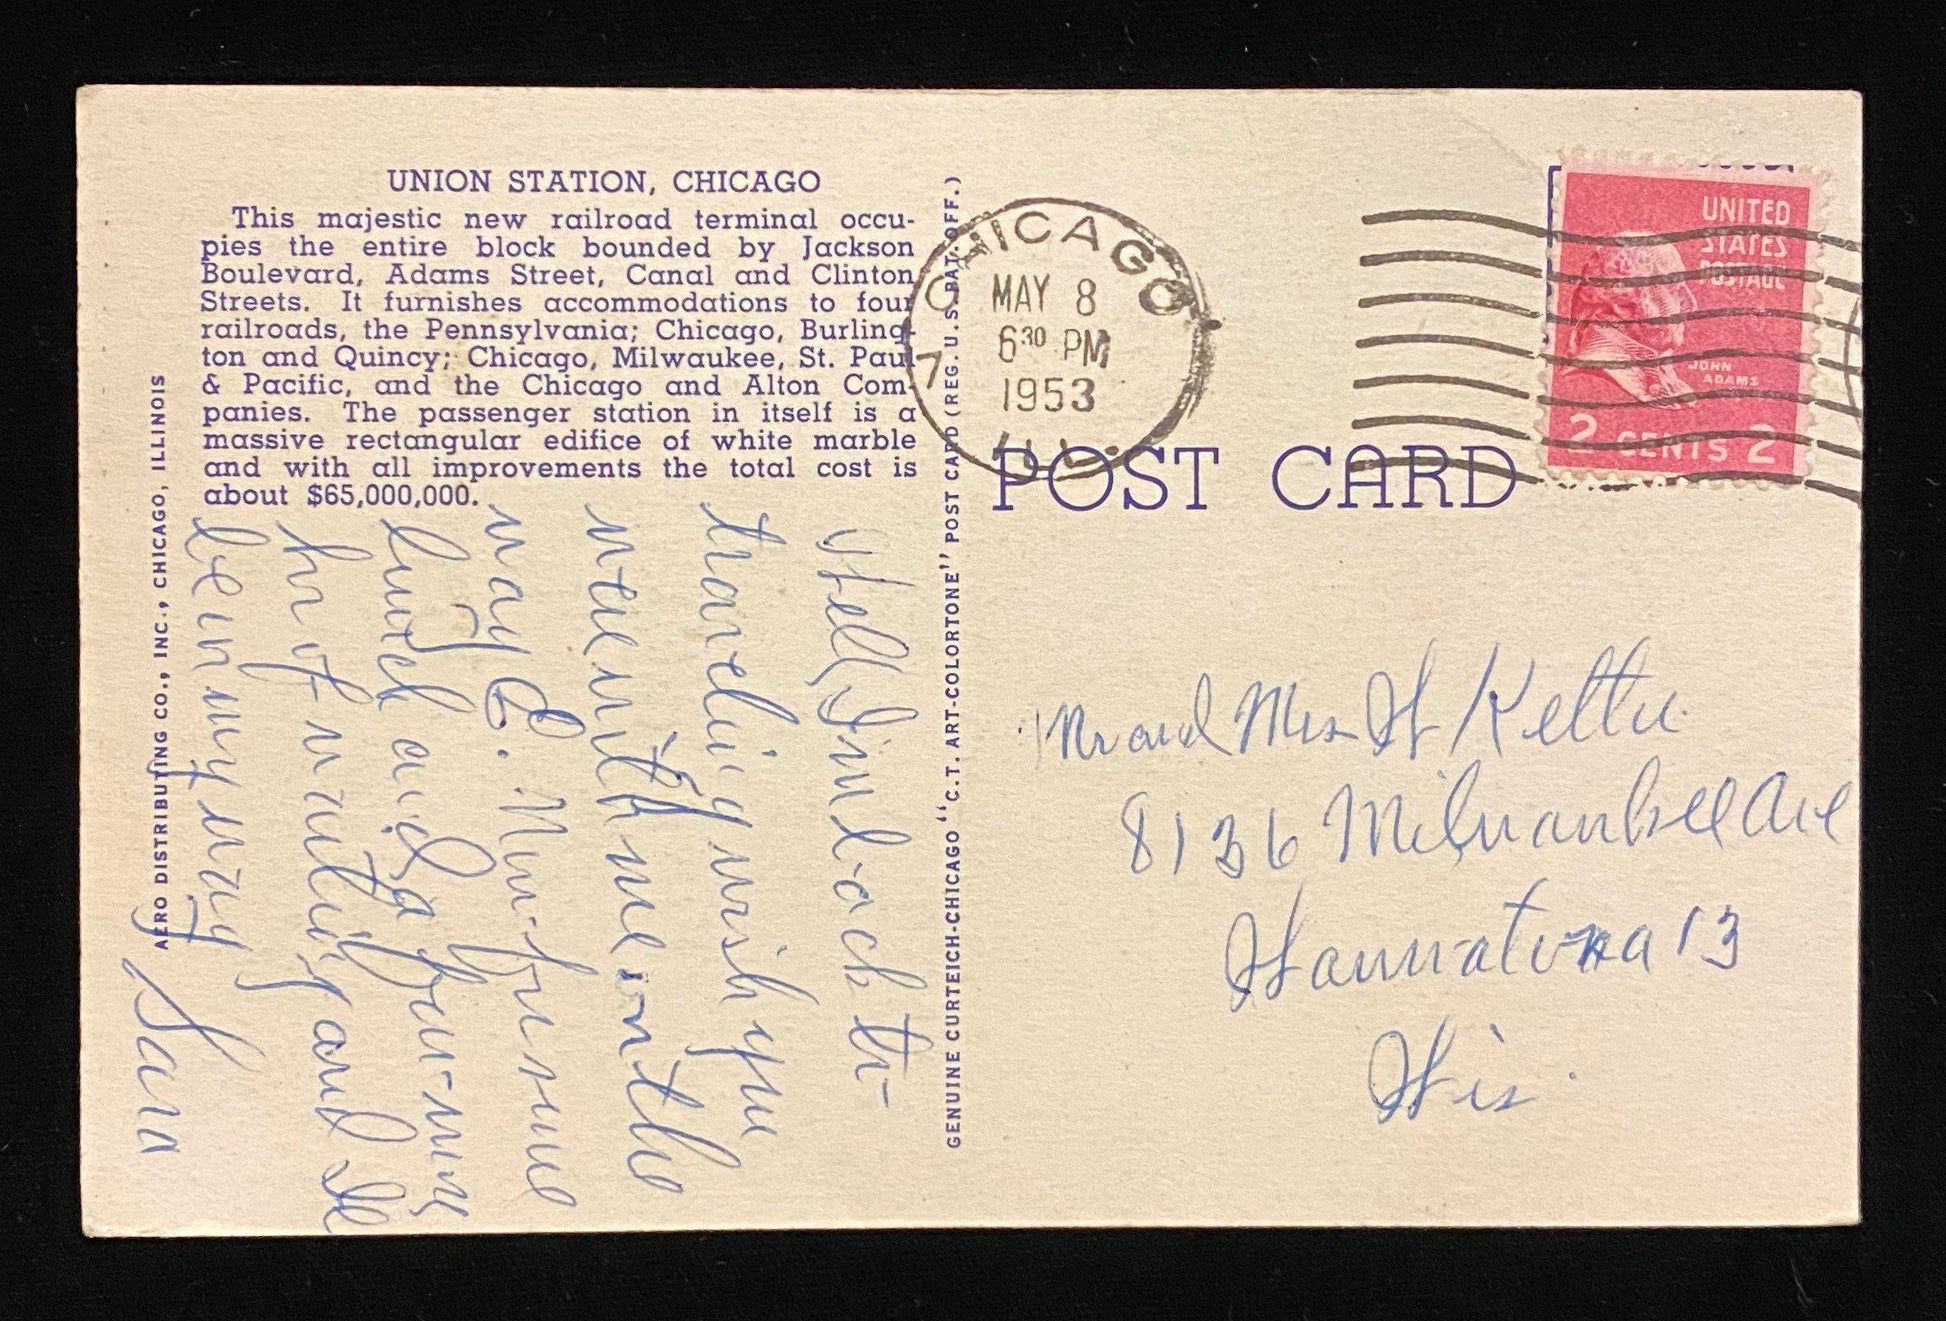 UNION STATION, CHICAGO
This majestic new railroad terminal occu-
pies the entire block bounded by Jackson
Boulevard, Adams Street, Canal and Clinton
Streets. It furnishes accommodations to four
railroads, the Pennsylvania; Chicago, Burling-
ton and Quincy; Chicago, Milwaukee, St. Paul
& Pacific, and the Chicago and Alton Com-
panies. The passenger station in itself is a
massive rectangular edifice of white marble
and with all improvements the total cost is
about $65,000,000.
Well, I'm back to
traveling wish you
were with me on the
way
lunch and a four
hr of waiting and I'll
be on my way
Sara
AERO DISTRIBUTING CO., INC., CHICAGO, ILLINOIS
GENUINE CURTEICH-CHICAGO "C.T. ART-COLORTONE" POST CARD (REG. U.S. PAT. OFF.)
CHICAGO
7
MAY 8
6 30 PM
1953
ILL.
POST CARD
UNITED
STATES
POSTAGE
JOHN
ADAMS
2 CENTS 2
Mr and Mrs H
8136 Milwaukee Ave
Wauwatosa 13
Wis.